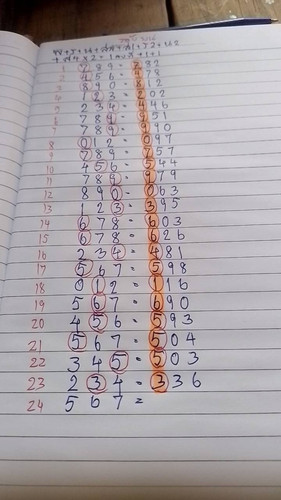 789 = 882
2 456 = 978
3 890 = 812
4 123 = 202
5 234 = 446
6 789 = 951
7 789 = 990
8 012 = 097
9 789 = 757
10 456 = 544
11 789 = 979
12 890 = 063
13 123 = 395
14 678 = 603
15 678 = 626
16 234 = 481
17 567 = 598
18 012 = 116
19 567 = 690
20 456 = 593
21 567 = 504
22 345 = 503
23 234 = 336
24 567 =